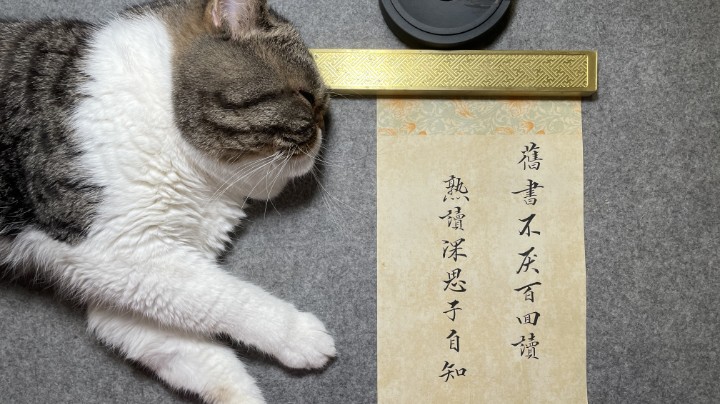 舊書不厌百回讀
熟讀深思子自知